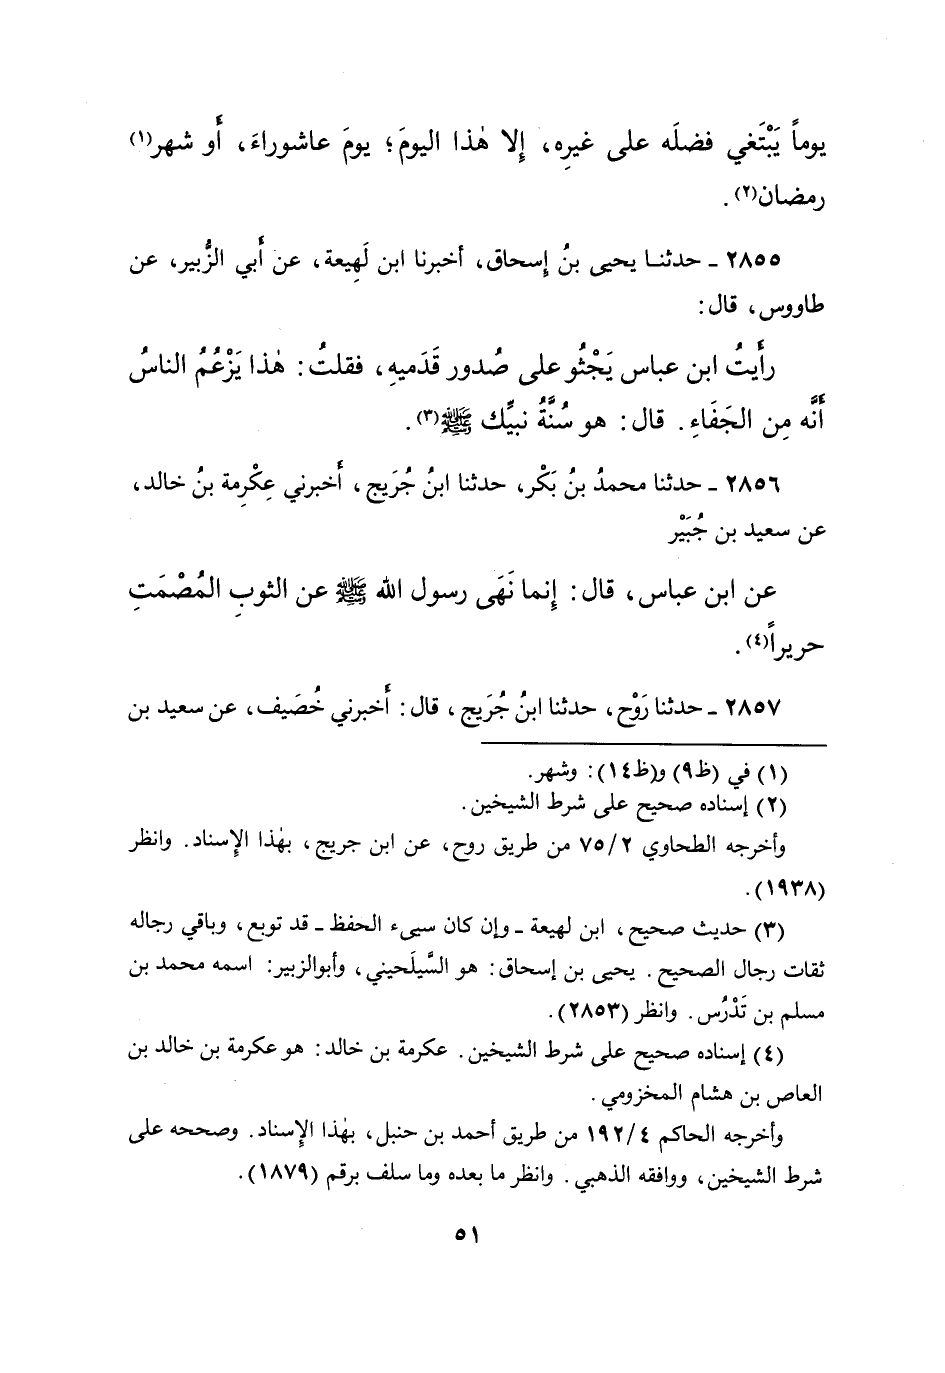 يوماً يَبْتَغي فضلَه على غيرِه، إِلا هٰذا اليومَ؛ يومَ عاشوراءَ، أَو شهر(١)
رمضان(٢).
٢٨٥٥ ـ حدثنا يحيى بنُ إسحاق، أخبرنا ابن لَهِيعة، عن أَبي الزُّبير، عن
طاووس، قال:
رأَيتُ ابن عباس يَجْثُو على صُدور قَدَميهِ، فقلتُ: هٰذا يَزْعُمُ الناسُ
أَنَّه مِن الجَفَاءِ. قال: هو سُنَّةُ نبيِّك ﷺ(٣).
٢٨٥٦ ـ حدثنا محمدُ بنُ بَكْر، حدثنا ابنُ جُرَيج، أَخبرني عِكْرِمة بنُ خالد،
عن سعيد بن جُبَيْر
عن ابن عباس، قال: إِنما نَهَى رسول الله ﷺ عن الثوبِ المُصْمَتِ
حريراً(٤).
٢٨٥٧ ـ حدثنا رَوْح، حدثنا ابنُ جُرَيج، قال: أَخبرني خُصَيف، عن سعيد بن
(١) في (ظ٩) و(ظ١٤): وشهر.
(٢) إسناده صحيح على شرط الشيخين.
وأخرجه الطحاوي ٧٥/٢ من طريق روح، عن ابن جريج، بهٰذا الإسناد. وانظر
(١٩٣٨).
(٣) حديث صحيح، ابن لهيعة ـ وإن كان سيىء الحفظ ـ قد توبع، وباقي رجاله
ثقات رجال الصحيح. يحيى بن إسحاق: هو السَّيلَحيني، وأبوالزبير: اسمه محمد بن
مسلم بن تَدْرُس. وانظر (٢٨٥٣).
(٤) إسناده صحيح على شرط الشيخين. عكرمة بن خالد: هو عكرمة بن خالد بن
العاص بن هشام المخزومي.
وأخرجه الحاكم ١٩٢/٤ من طريق أحمد بن حنبل، بهٰذا الإسناد. وصححه على
شرط الشيخين، ووافقه الذهبي. وانظر ما بعده وما سلف برقم (١٨٧٩).
٥١